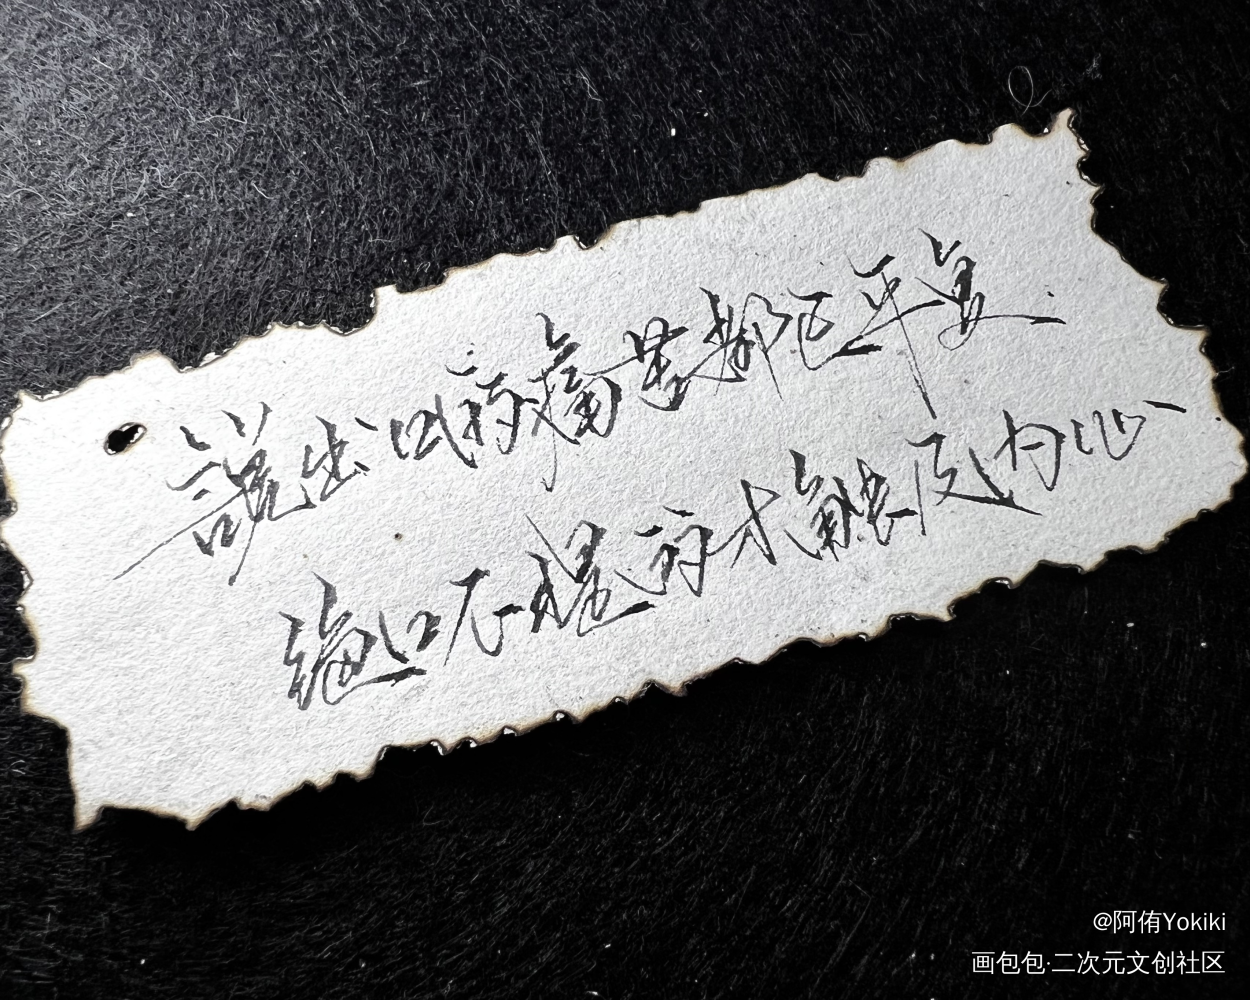 說出口的痛苦都已平復
絕口不提的才觸及內心
@阿侑Yokiki
画包包·二次元文创社区